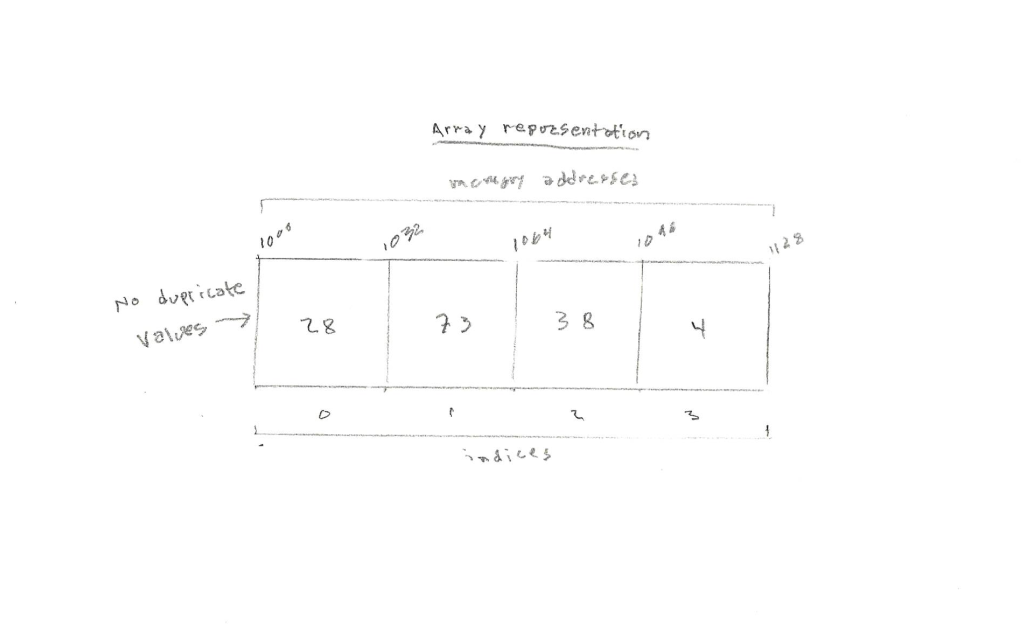 Array reporsentation
memory addresses
1000 1032 1064 1096 1128
No duplicate
values →
28 73 38 4
0 1 2 3
indices